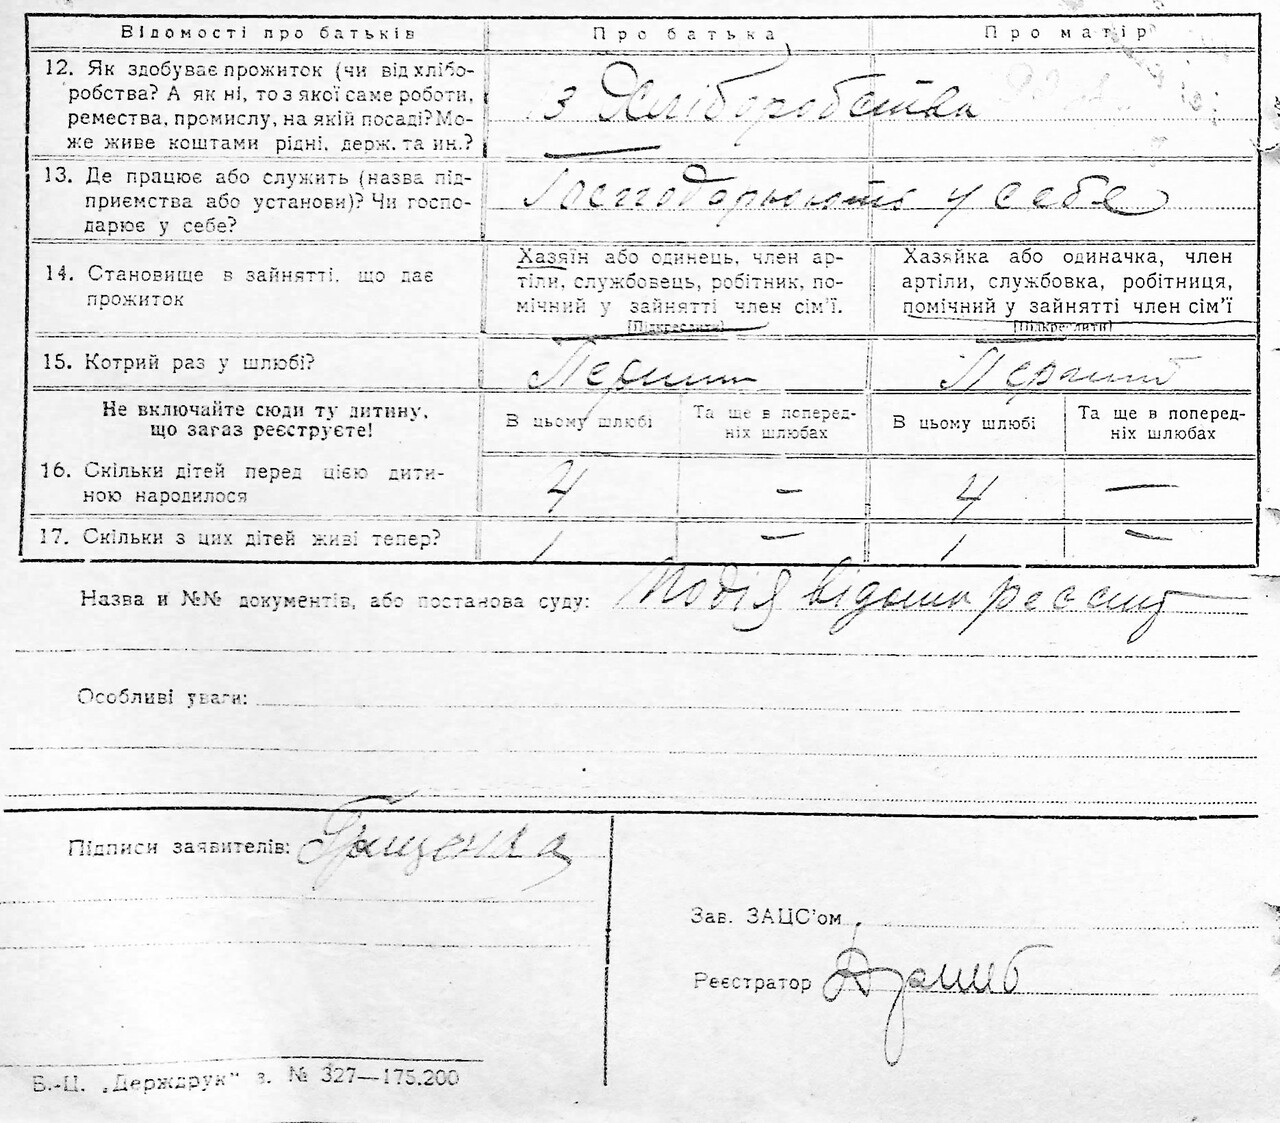 Відомості про батьків Про батька Про матір
12. Як здобуває прожиток (чи від хлібо-
робства? А як ні, то з якої саме роботи,
ремества, промислу, на якій посаді? Мо-
же живе коштами рідні, держ. та ин.?
з Хліборобства
13. Де працює або служить (назва під-
приємства або установи)? Чи госпо-
дарює у себе?
Господарюють у себе
14. Становище в зайнятті, що дає
прожиток
Хазяїн або одинець, член ар-
тіли, службовець, робітник, по-
мічний у зайнятті член сім'ї.
[Підкреслити]
Хазяйка або одиначка, член
артіли, службовка, робітниця,
помічний у зайнятті член сім'ї
[Підкреслити]
15. Котрий раз у шлюбі? Перший Перший
Не включайте сюди ту дитину,
що зараз реєструєте!
В цьому шлюбі
Та ще в поперед-
ніх шлюбах
В цьому шлюбі
Та ще в поперед-
ніх шлюбах
16. Скільки дітей перед цією дити-
ною народилося
4 — 4 —
17. Скільки з цих дітей живі тепер? 1 — 1 —
Назва и №№ документів, або постанова суду: Подія відома
Особливі уваги:
Підписи заявителів:
Зав. ЗАЦС'ом
Реєстратор
Б.-Ц. „Держдрук" з. № 327—175.200